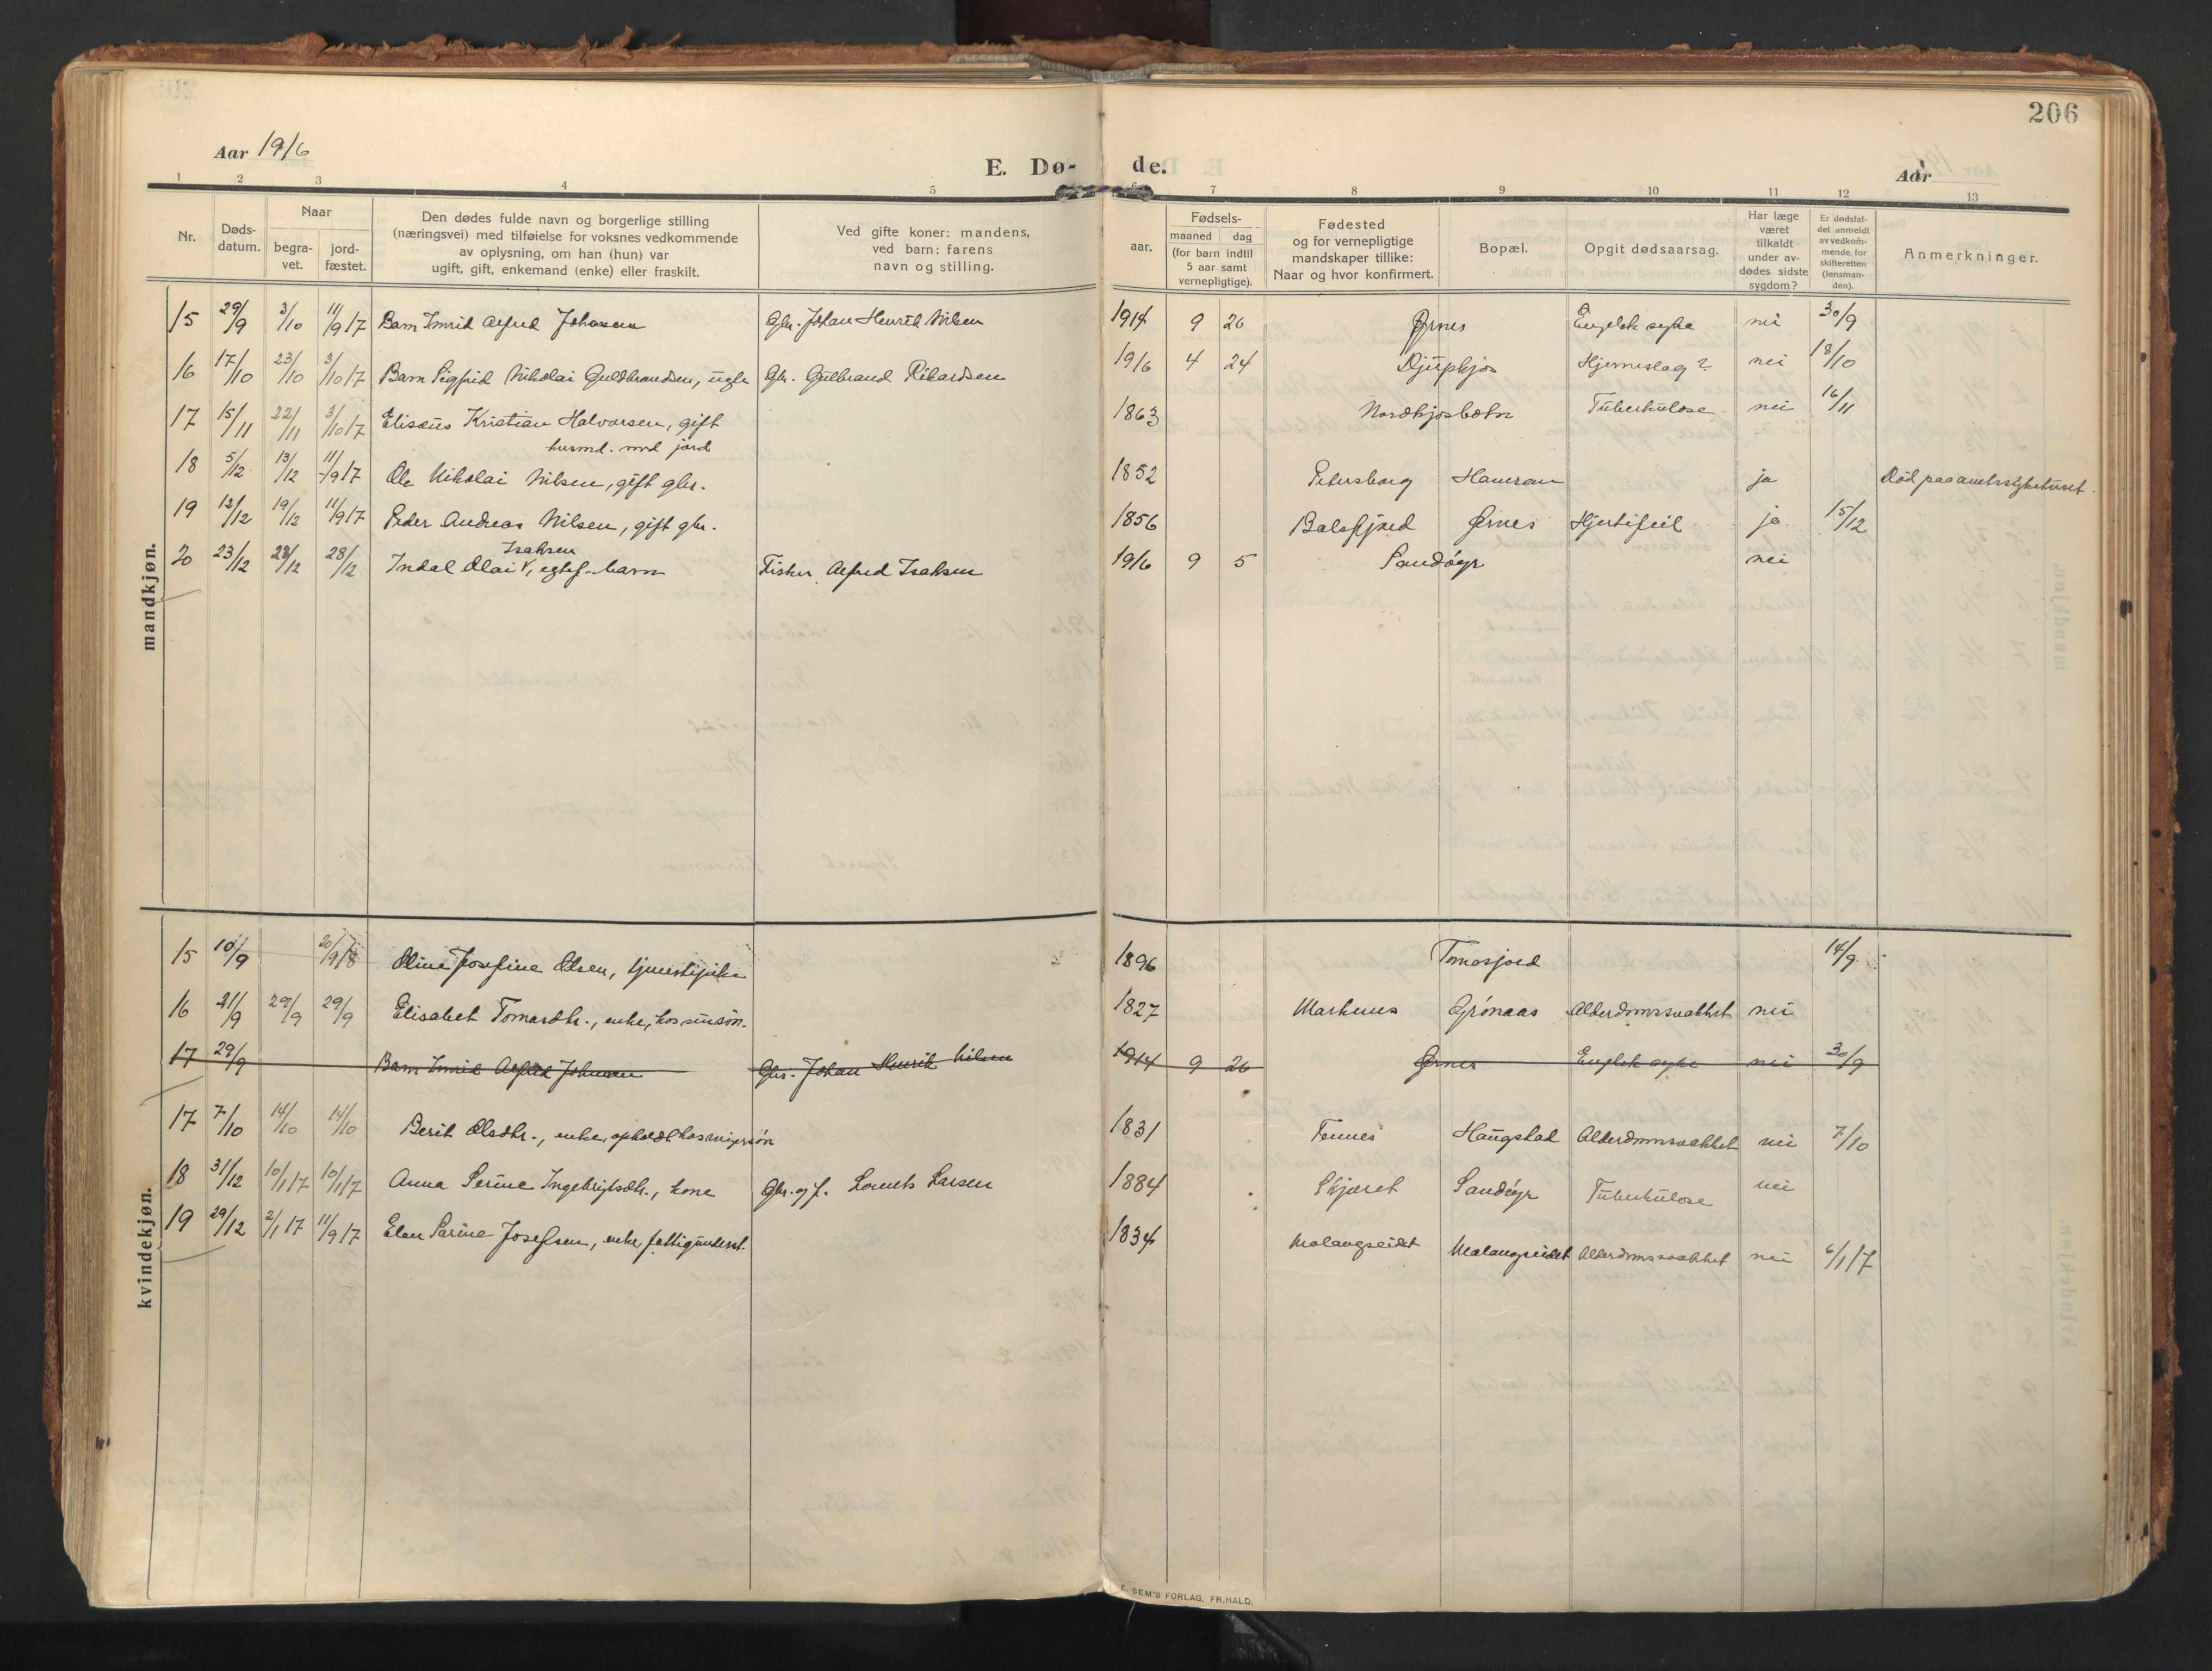 206
Aar 1916
E. Dø- de.
Aar
1 2 3 4 5 6 7 8 9 10 11 12 13
Nr.
Døds-
datum.
Naar
begra-
vet.
jord-
fæstet.
Den dødes fulde navn og borgerlige stilling
(næringsvei) med tilføielse for voksnes vedkommende
av oplysning, om han (hun) var
ugift, gift, enkemand (enke) eller fraskilt.
Ved gifte koner: mandens,
ved barn: farens
navn og stilling.
Fødsels-
aar.
maaned dag
(for barn indtil
5 aar samt
vernepligtige).
Fødested
og for vernepligtige
mandskaper tillike:
Naar og hvor konfirmert.
Bopæl.
Opgit dødsaarsag.
Har læge
været
tilkaldt
under av-
dødes sidste
sygdom?
Er dødsfal-
det anmeldt
av vedkom-
mende for
skifteretten
(lensman-
den).
Anmerkninger.
mandkjøn.
15 29/9 3/10 11/9 17 Barn Imrid Alfred Johansen Gbr. Johan Henrik Nilsen 1914 9 26 Ørnes Engelsk syke nei 30/9
16 17/10 23/10 3/10 17 Barn Sigfrid Nikolai Guldbrandsen, ugte Gbr. Gulbrand Rikardsen 1916 4 24 Djupkjos Hjerneslag? nei 18/10
17 15/11 22/11 3/10 17 Elisæus Kristian Halvorsen, gift 1863 Nordkjosbotn Tuberkulose nei 16/11
husmd. med jord
18 5/12 13/12 11/9 17 Ole Nikolai Nilsen, gift gbr. 1852 Petersborg Hamran ja Død paa amtssykehuset.
19 12/12 19/12 11/9 17 Peder Andreas Nilsen, gift gbr. 1856 Balsfjord Ørnes Hjertefeil ja 15/12
Isaksen
20 23/12 28/12 28/12 Indal Olai V, egtef. barn Fisker Alfred Isaksen 1916 9 5 Sandøyr nei
kvindekjøn.
15 10/9 20/9 18 Oline Josefine Olsen, tjenestepike 1896 Tomasjord 14/9
16 21/9 29/9 29/9 Elisabet Tomasdtr., enke, hos sin søn. 1827 Markenes Grønaas Alderdomssvakhet nei
17 29/9 Barn Imrid Alfred Johansen Gbr. Johan Henrik Nilsen 1914 9 26 Ørnes Engelsk syke nei 30/9
17 7/10 14/10 14/10 Berit Olsdtr., enke, opholdt hos svigersøn 1831 Tennes Haugstad Alderdomssvakhet nei 7/10
18 31/12 10/1 17 10/1 17 Anna Serine Ingebrigtsdtr., kone Gbr. og f. Lornts Larsen 1884 Skjæret Sandøyr Tuberkulose nei
19 29/12 2/1 17 11/9 17 Elen Sarine Josefsen, enke fattigunderst. 1834 Malangseidet Malangseidet Alderdomssvakhet nei 6/1 17
E. SEM'S FORLAG, FR.HALD.